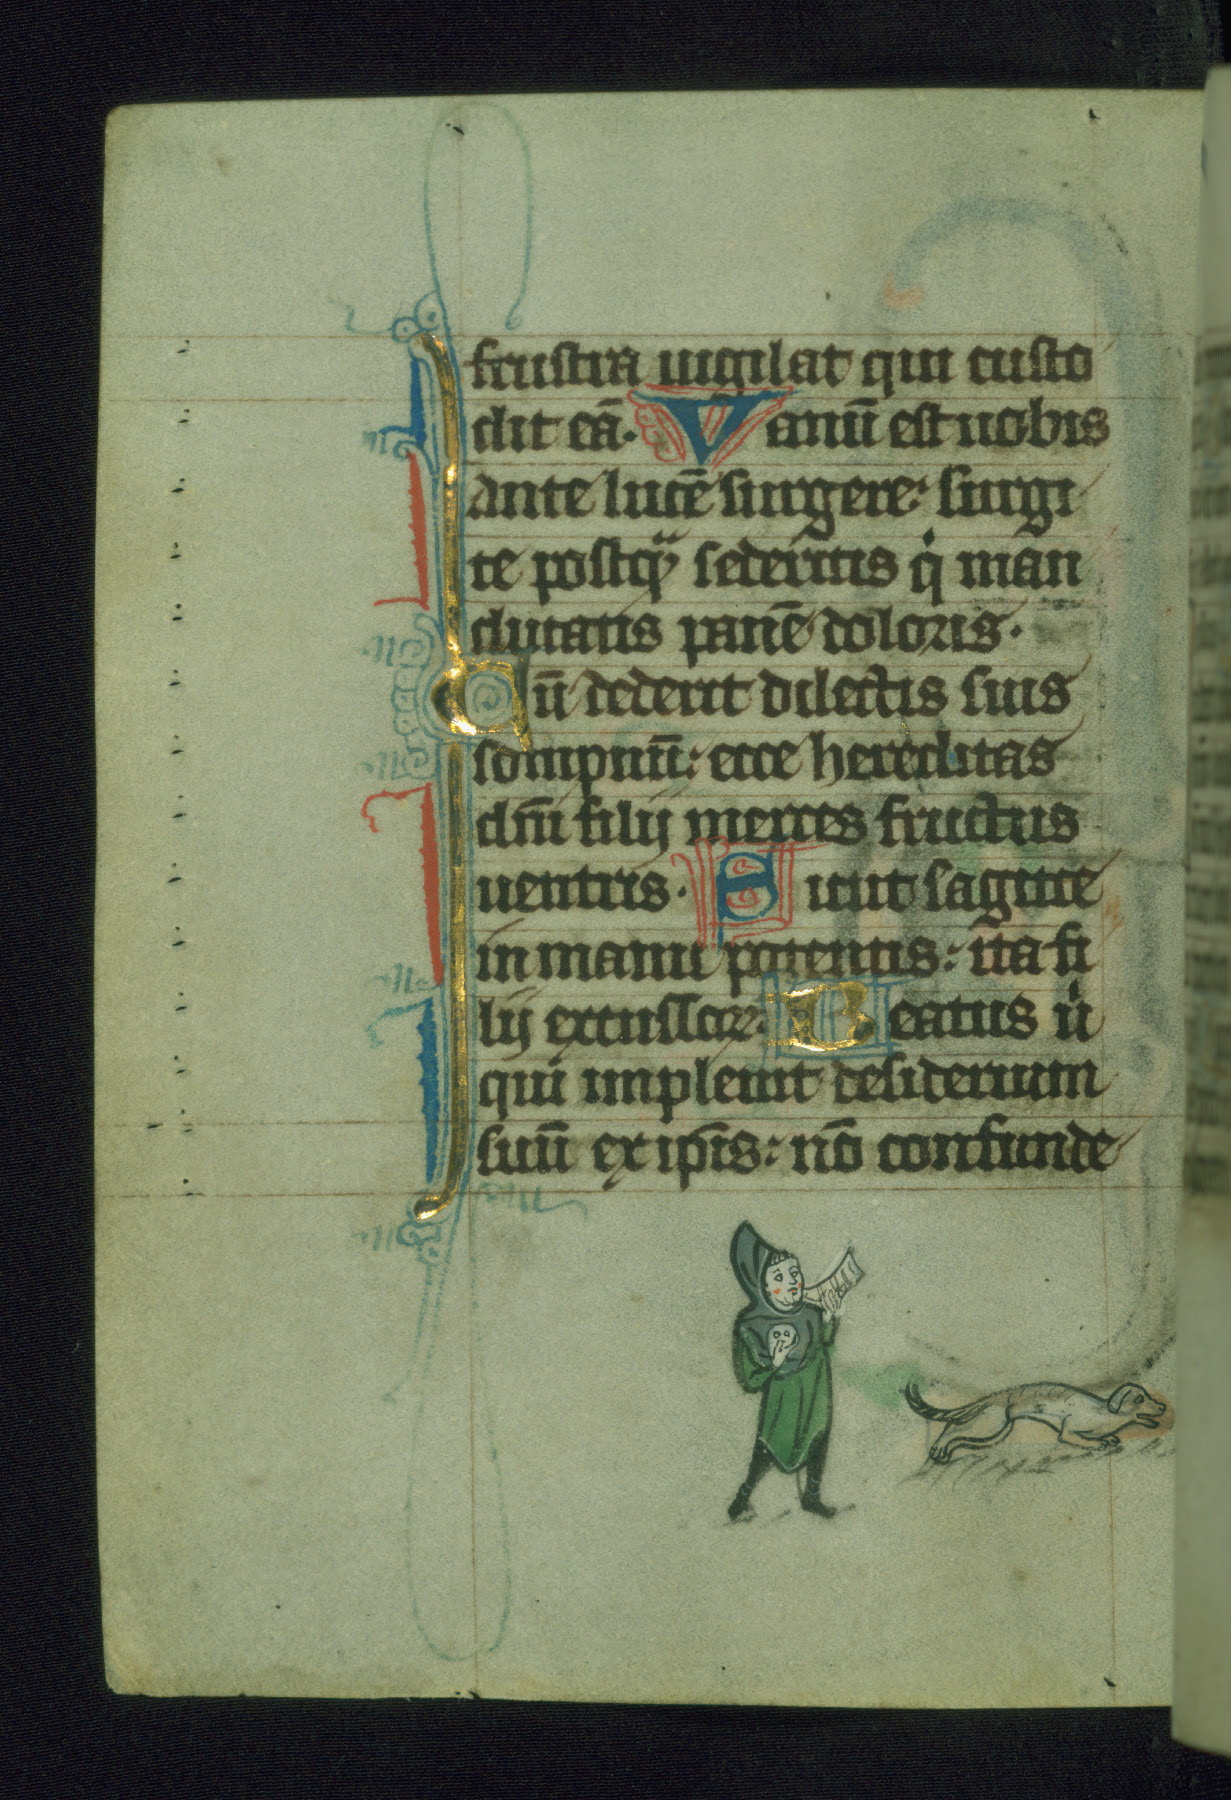 frustra uigilat qui custo
dit eā. Vanū est uobis
ante lucē surgere: surgi
te postq̄ sederitis q̇ man
ducatis panē doloris.
Cū dederit dilectis suis
sompnū: ecce hereditas
dn̄i filij merces fructus
uentris. Sicut sagitte
in manu potentis: ita fi
lij excussoꝝ. Beatus ur̄
qui impleuit desiderium
suū ex ip̄is: nō confunde